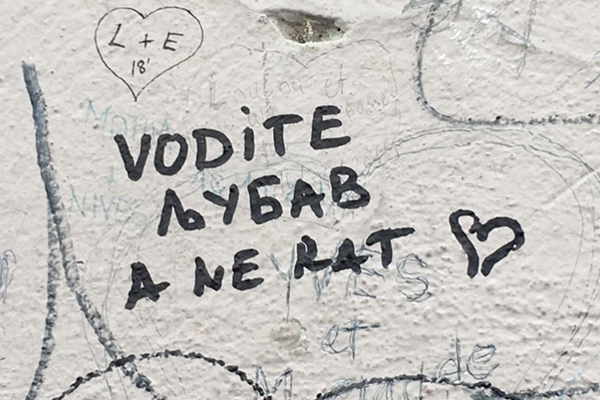 L + E
18'
VODiTE
ЉУБАВ
A NE RAT
YVES
et
de